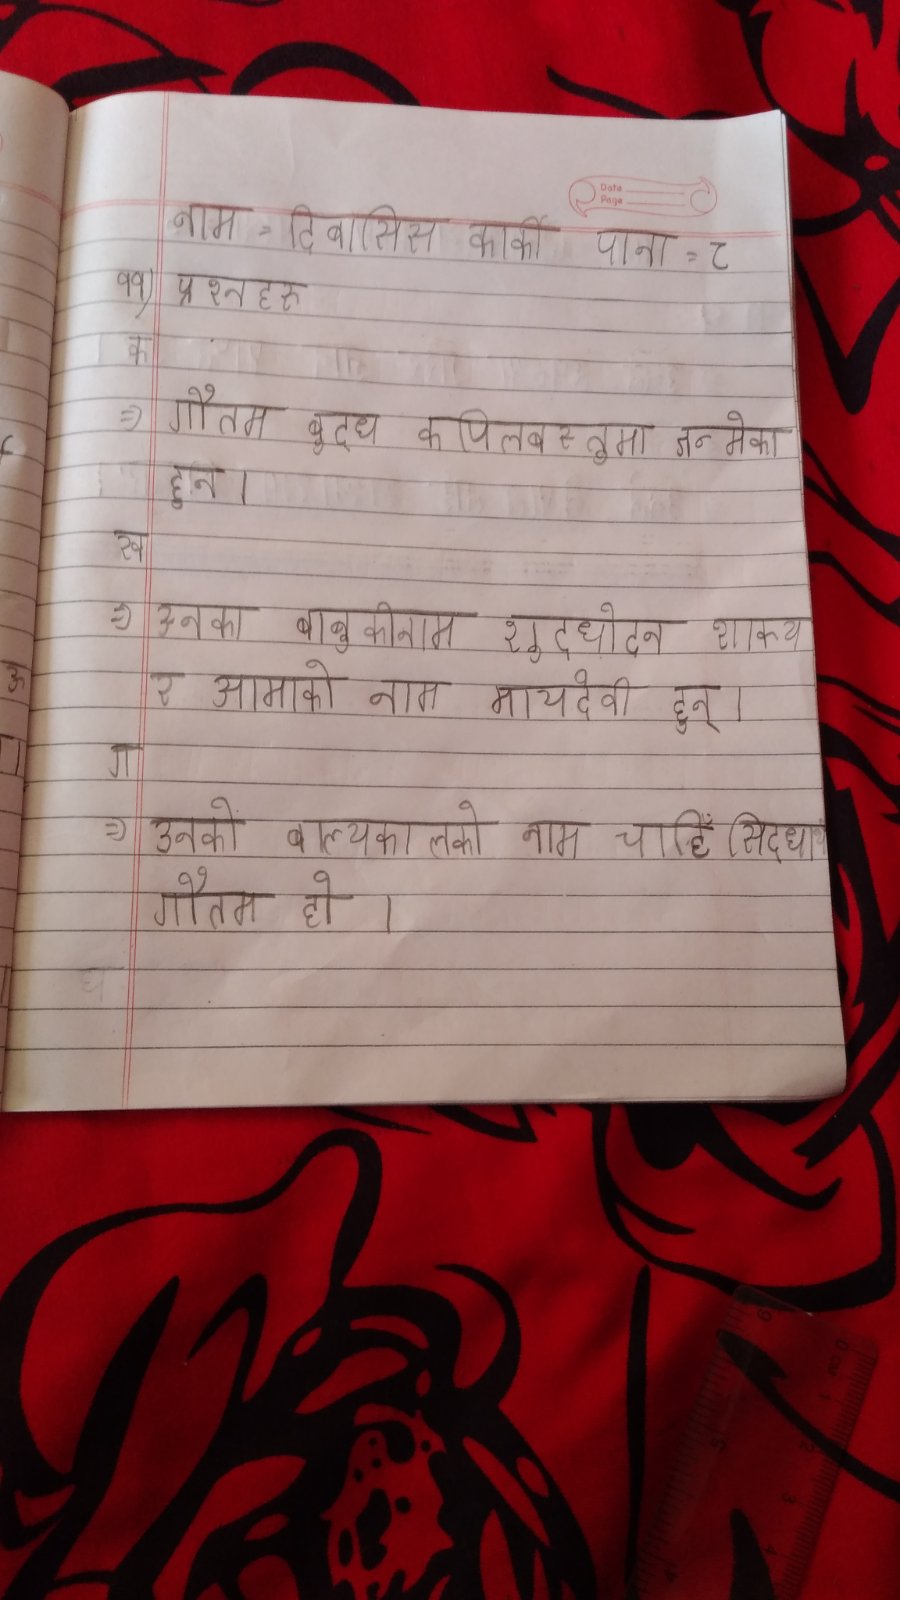 Date
Page
नाम = दिवासिस कार्की पाना = ८
११) प्रश्नहरु
क
⇒ गौतम बुद्ध कपिलबस्तुमा जन्मेका
हुन ।
ख
⇒ उनका बाबुकोनाम शुद्धोदन शाक्य
र आमाको नाम मायदेवी हुन् ।
ग
⇒ उनको बाल्यकालको नाम चाहिँ सिद्धार्थ
गौतम हो ।
घ